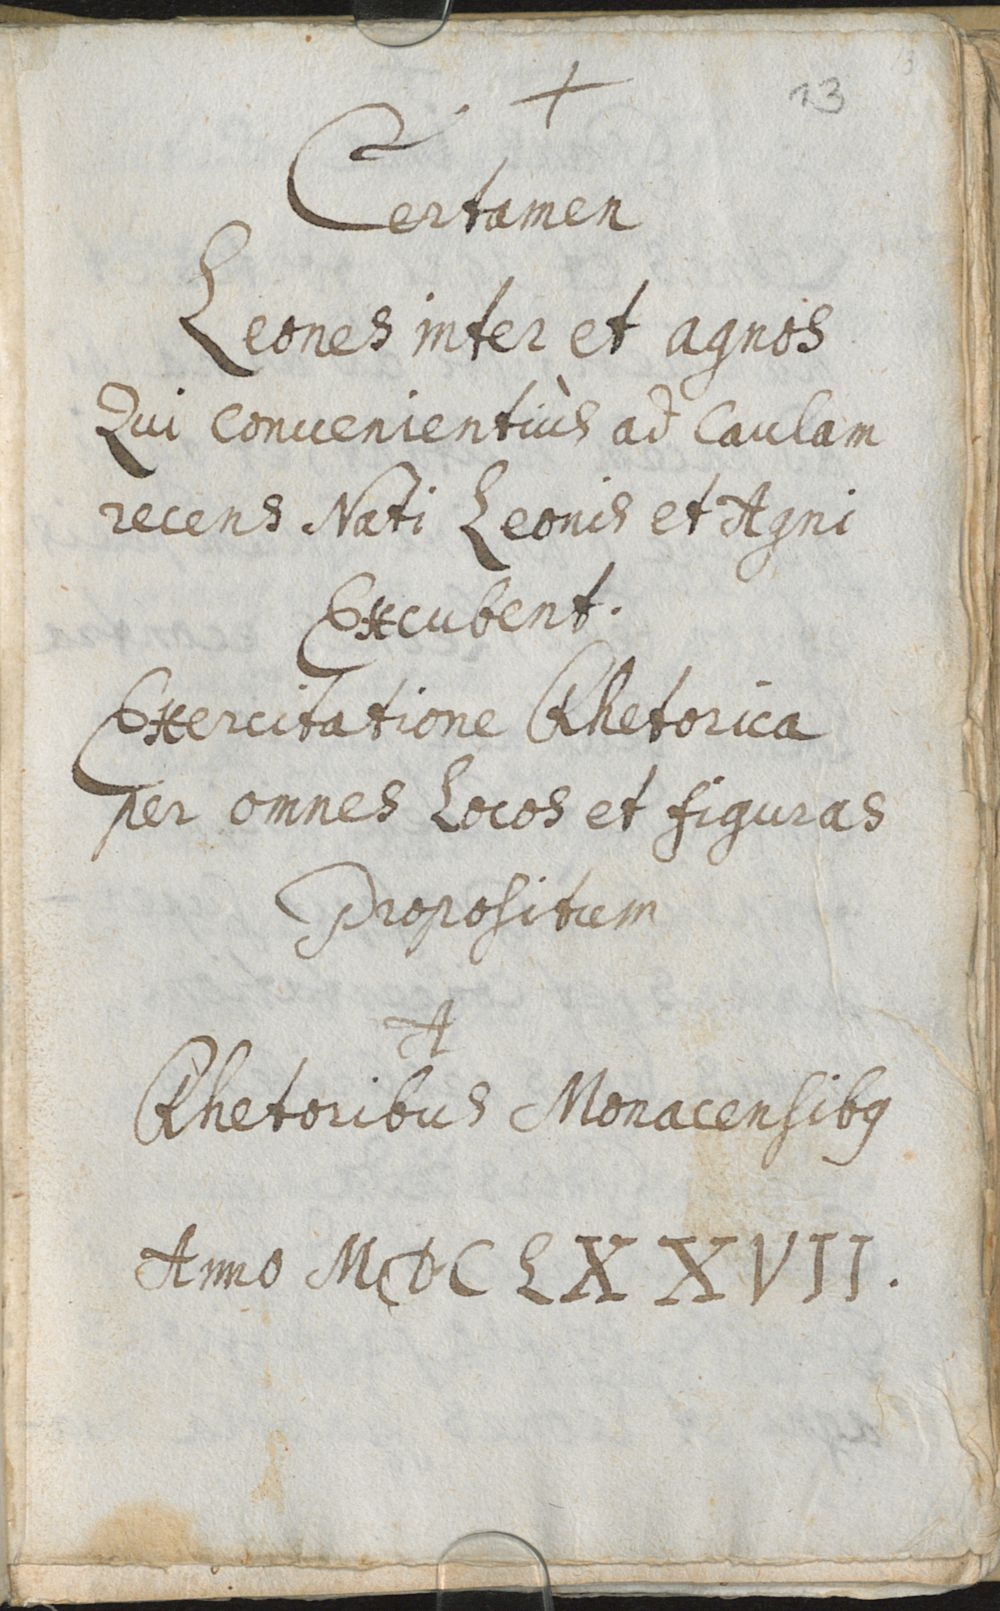 +
13
Certamen
Leones inter et agnos
Qui conuenientiùs ad Caulam
recens Nati Leonis et Agni
Excubent.
Exercitatione Rhetorica
per omnes Locos et figuras
Propositum
A
Rhetoribus Monacensibq
Anno MDCLXXVII.